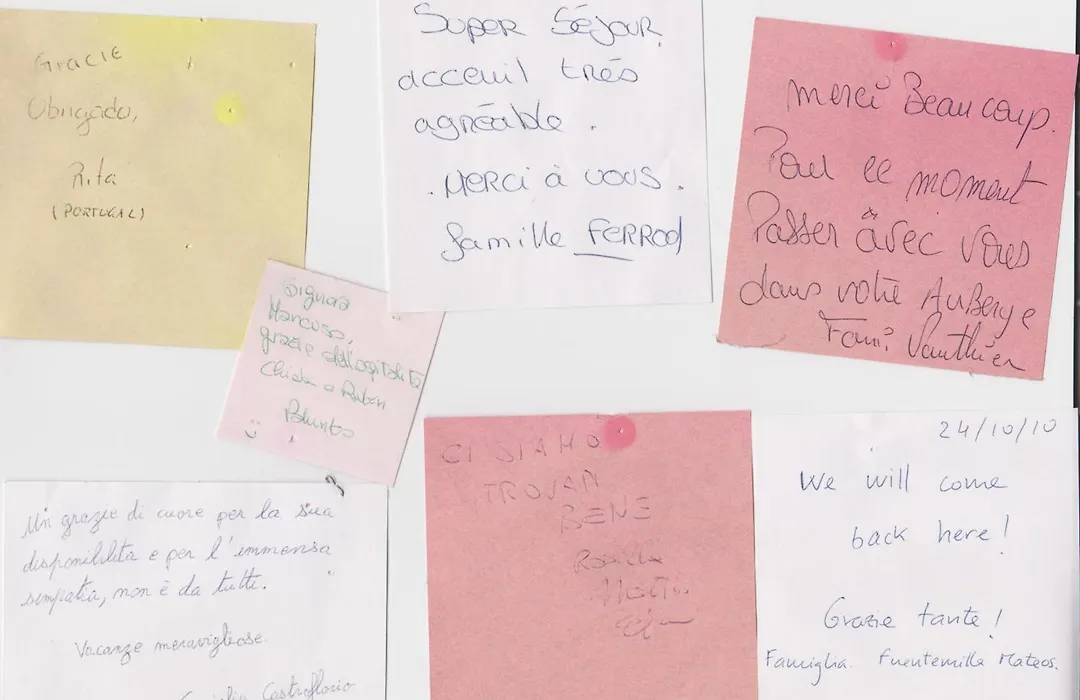 Gracie
Obrigado,
Rita
(PORTUGAL)
SUPER SÉJOUR
acceuil trés
agréable.
. MERCI à VOUS.
famille FERROD
merci Beaucoup.
Pour ce moment
Passer àvec vous
dans votre AuBerge
Fami Vauthier
Signora
Mancuso,
grazie dell'ospitalità
Chiara e Ruben
CI SIAMO
TROVAN
BENE
Rosella
24/10/10
We will come
back here!
Grazie tante!
Famiglia. Fuentemilla Mateos.
Un grazie di cuore per la sua
disponibilità e per l'immensa
simpatia, non è da tutti.
Vacanze meravigliose.
Castroflorio